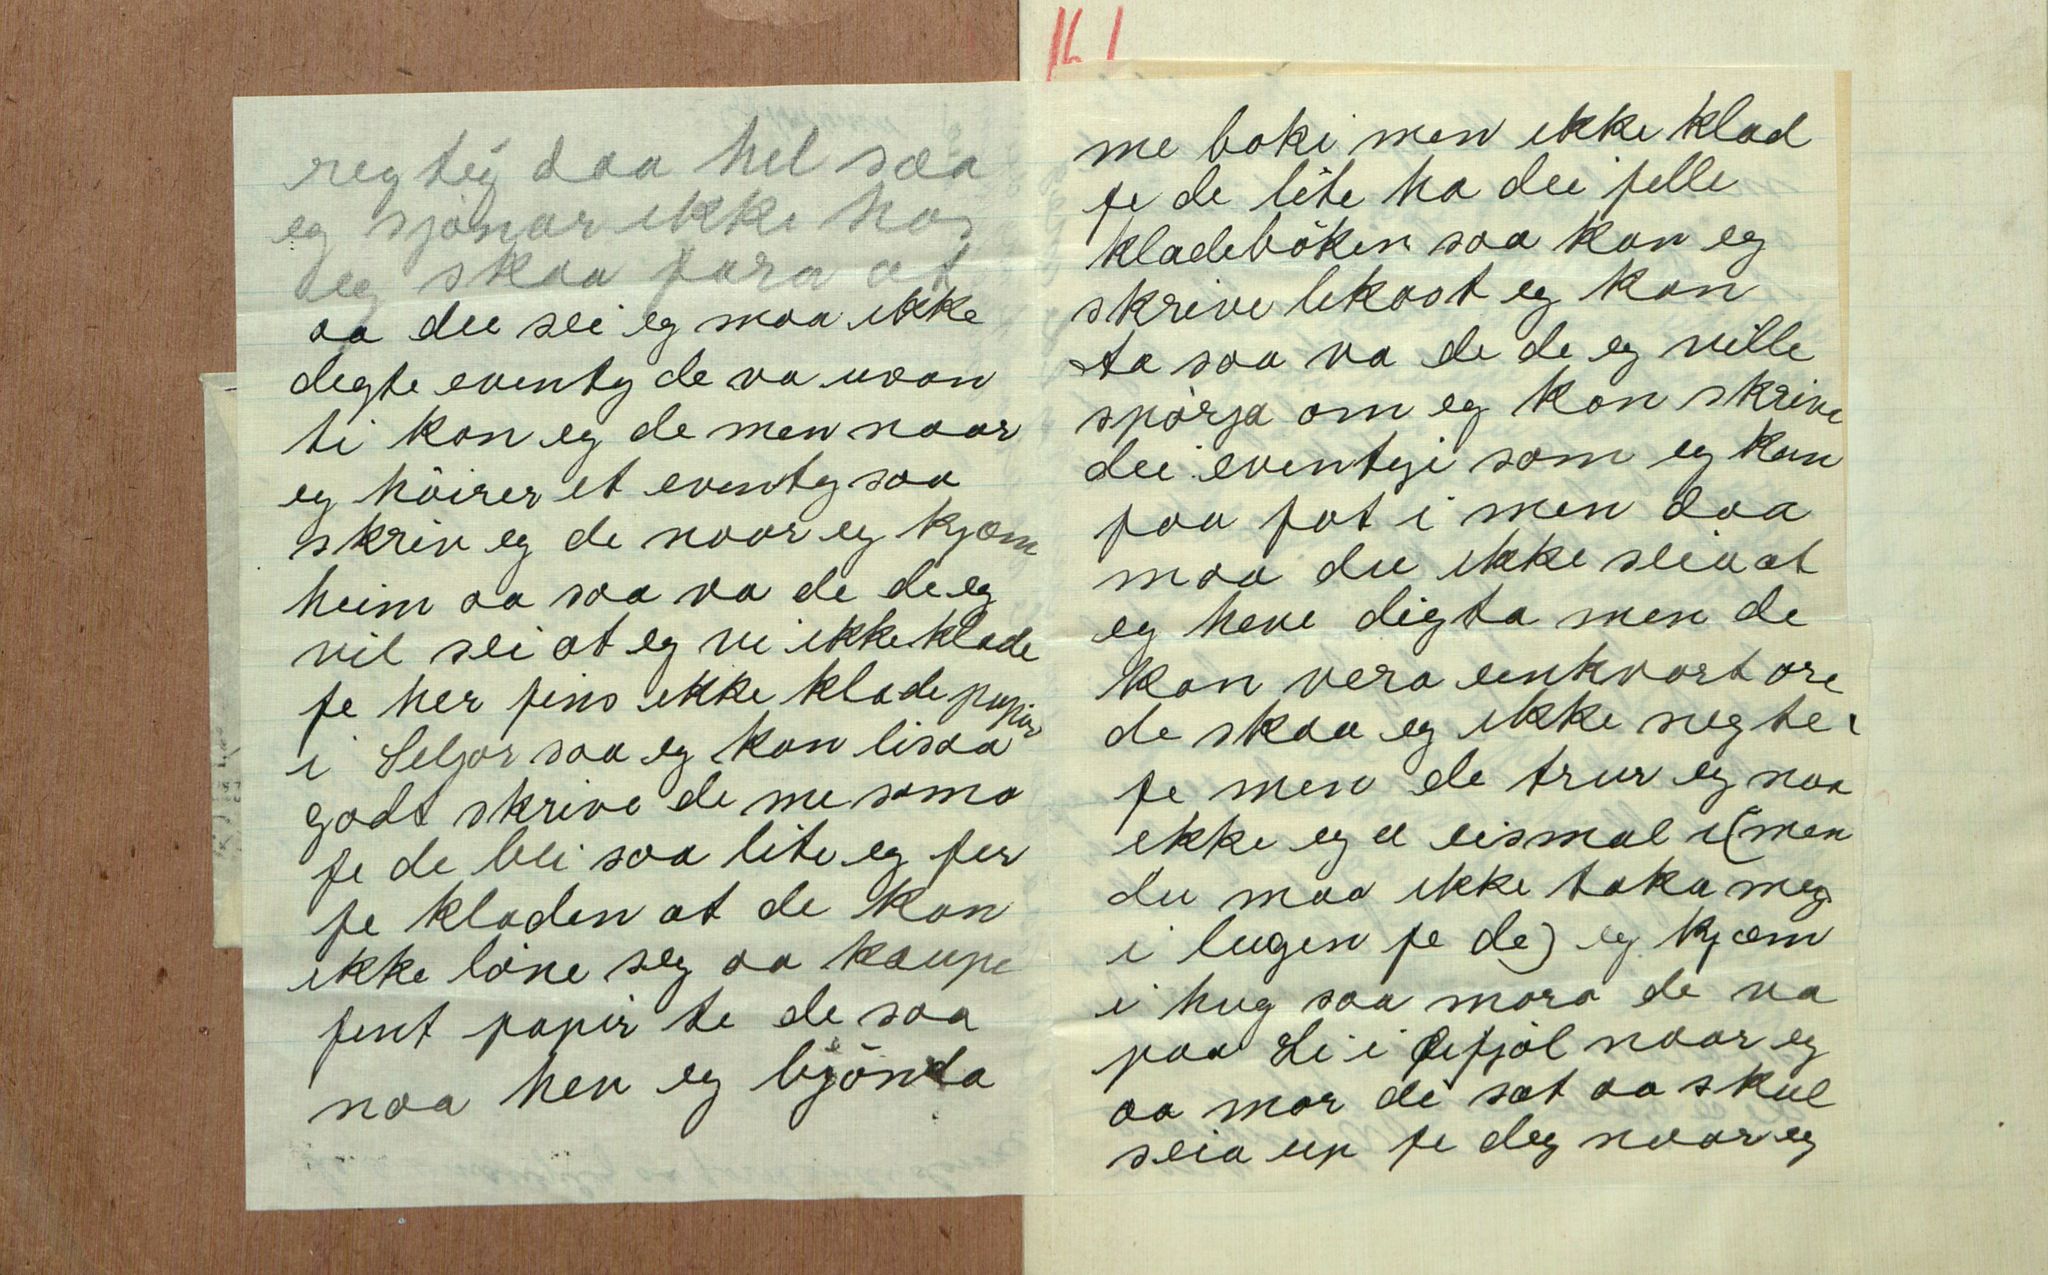 regtig daa hel saa
eg sjönar ikke hos
eg skaa fara at
aa du sei eg maa ikke
degte eventy de va uvan
ti kan eg de men naar
eg höirer et eventy saa
skriv eg de naar eg kjæm
heim aa saa va de de eg
vil sei at eg vi ikke klade
fe her fins ikke klade papir
i Seljor saa eg kan lisaa
godt skrive de me soma
fe de bli saa lite eg fer
fe kladen at de kan
ikke löne seg aa kaupe
fent papir te de saa
naa hev eg byönda
161
me boki men ikke klad
fe de lite ha dei felle
kladeböken saa kan eg
skrive lekaot eg kan
ta saa va de de eg ville
spörja om eg kan skrive
dei eventyi som eg kan
faa fat i men daa
maa du ikke seia at
eg heve digta men de
kan vera einkvart ore
de skaa eg ikke negte
fe men de trur eg naa
ikke eg e eismal i (men
du maa ikke taka meg
i lugen fe de) eg kjæm
i hug saa mara de va
paa Li i Flatfjöl naar eg
aa mor di sat aa skul
seia up fe deg naar eg